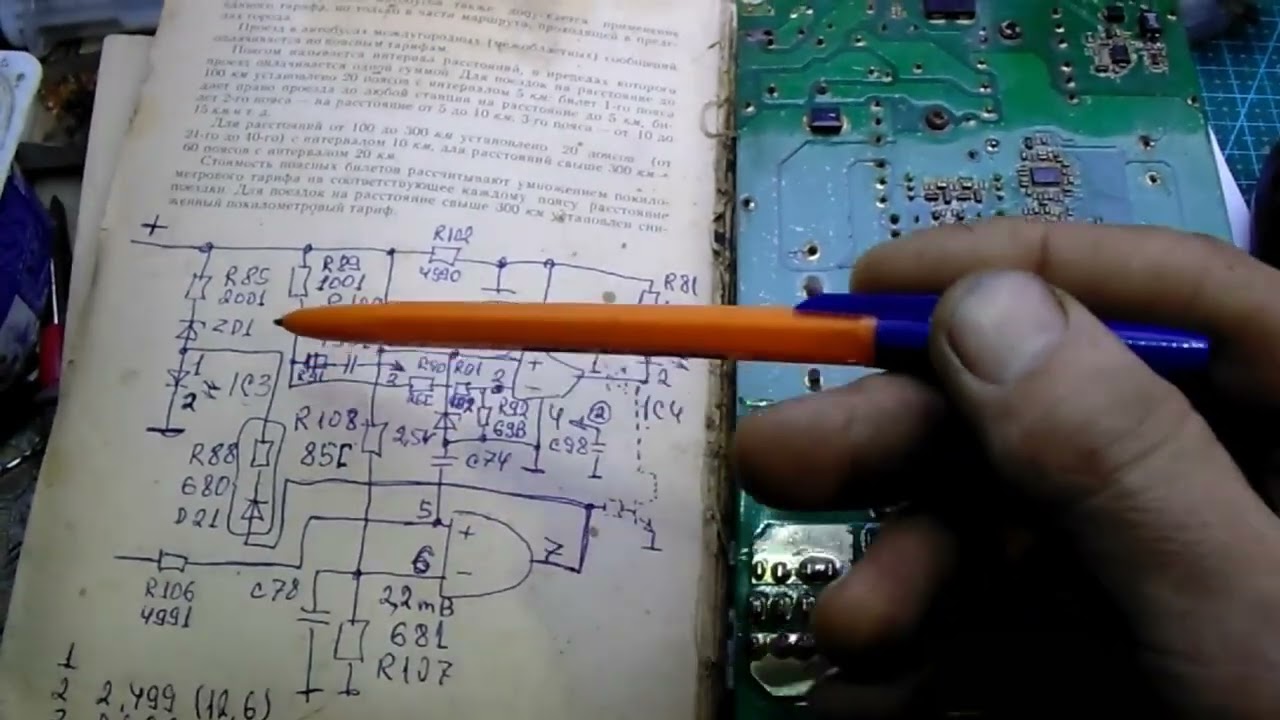 единого тарифа, но только в части маршрута, проходящей в преде-
лах города.
Проезд в автобусах междугородных (межобластных) сообщений
оплачивается по поясным тарифам.
Поясом называется интервал расстояний, в пределах которого
проезд оплачивается одной суммой. Для поездок на расстояние до
100 км установлено 20 поясов с интервалом 5 км: билет 1-го пояса
дает право проезда до любой станции на расстояние до 5 км, би-
лет 2-го пояса — на расстояние от 5 до 10 км, 3-го пояса — от 10 до
15 км и т. д.
Для расстояний от 100 до 300 км установлено 20 поясов (от
21-го до 40-го) с интервалом 10 км, для расстояний свыше 300 км —
60 поясов с интервалом 20 км.
Стоимость поясных билетов рассчитывают умножением покило-
метрового тарифа на соответствующее каждому поясу расстояние
поездки. Для поездок на расстояние свыше 300 км установлен сни-
женный покилометровый тариф.
+
R102
4990
R85
2001
R89
1001
R81
ZD1
1
2
IC3
R90
R91
2
2
+
−
1
2
IC4
R92
69B
4
2
C98
R108
85C
2,5V
C74
R88
680
D21
5
+
6
−
7
R106
4991
C78
2,2mB
681
R107
1
2 2,499 (12,6)